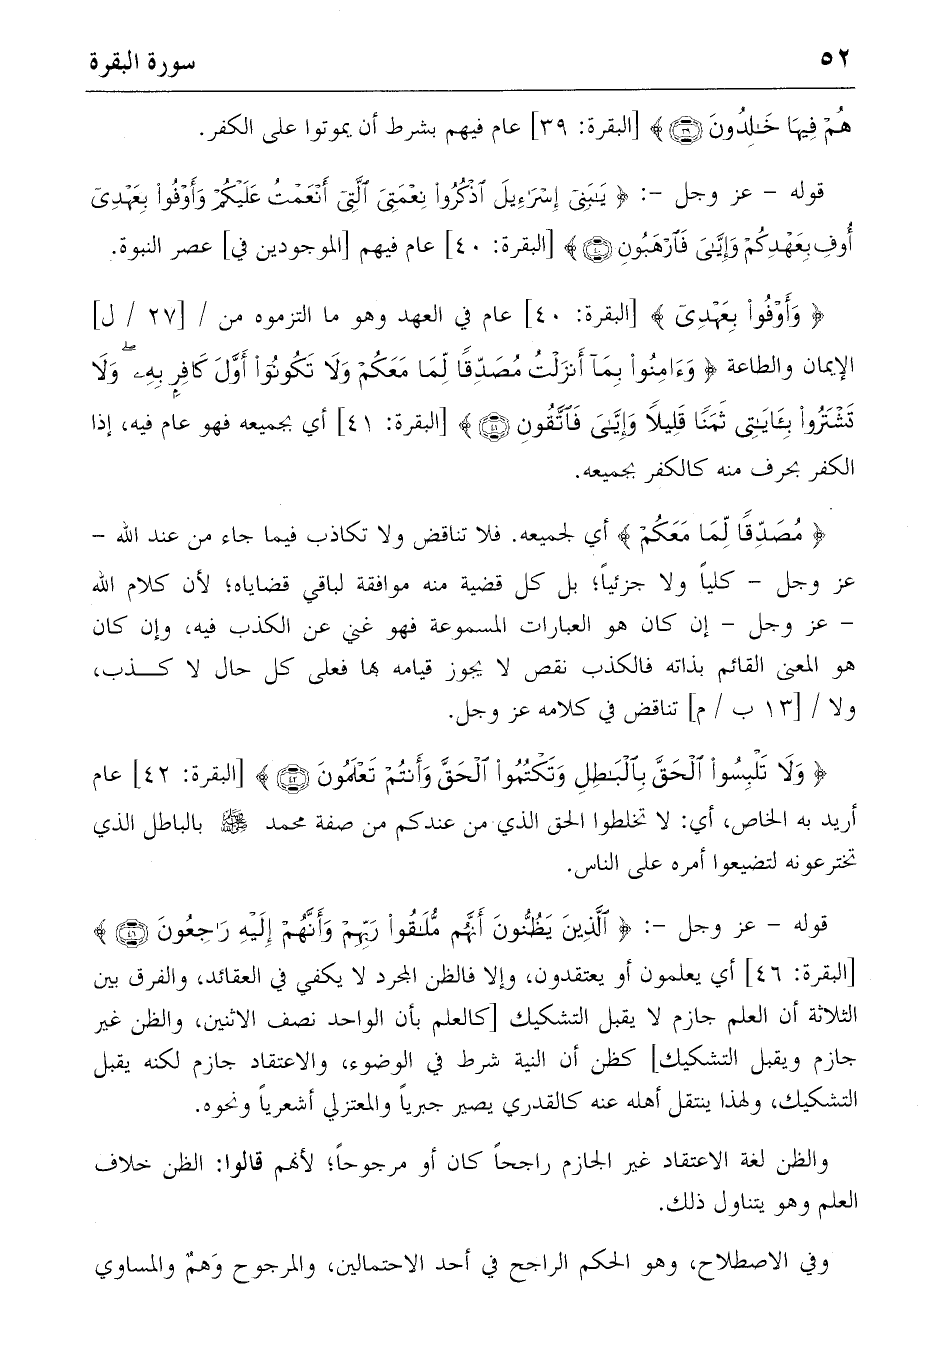 ٥٢ سورة البقرة
هُمْ فِيهَا خَـٰلِدُونَ ﴿٣٩﴾ ﴾ [البقرة: ٣٩] عام فيهم بشرط أن يموتوا على الكفر.
قوله – عز وجل –: ﴿ يَـٰبَنِىٓ إِسْرَٰٓءِيلَ ٱذْكُرُوا۟ نِعْمَتِىَ ٱلَّتِىٓ أَنْعَمْتُ عَلَيْكُمْ وَأَوْفُوا۟ بِعَهْدِىٓ
أُوفِ بِعَهْدِكُمْ وَإِيَّـٰىَ فَٱرْهَبُونِ ﴿٤٠﴾ ﴾ [البقرة: ٤٠] عام فيهم [الموجودين في] عصر النبوة.
﴿ وَأَوْفُوا۟ بِعَهْدِىٓ ﴾ [البقرة: ٤٠] عام في العهد وهو ما التزموه من / [٢٧ / ل]
الإيمان والطاعة ﴿ وَءَامِنُوا۟ بِمَآ أَنزَلْتُ مُصَدِّقًا لِّمَا مَعَكُمْ وَلَا تَكُونُوٓا۟ أَوَّلَ كَافِرٍۭ بِهِۦ ۖ وَلَا
تَشْتَرُوا۟ بِـَٔايَـٰتِى ثَمَنًا قَلِيلًا وَإِيَّـٰىَ فَٱتَّقُونِ ﴿٤١﴾ ﴾ [البقرة: ٤١] أي بجميعه فهو عام فيه، إذا
الكفر بحرف منه كالكفر بجميعه.
﴿ مُصَدِّقًا لِّمَا مَعَكُمْ ﴾ أي لجميعه. فلا تناقض ولا تكاذب فيما جاء من عند الله –
عز وجل – كلياً ولا جزئياً؛ بل كل قضية منه موافقة لباقي قضاياه؛ لأن كلام الله
– عز وجل – إن كان هو العبارات المسموعة فهو غني عن الكذب فيه، وإن كان
هو المعنى القائم بذاته فالكذب نقص لا يجوز قيامه بها فعلى كل حال لا كـــذب،
ولا / [١٣ ب / م] تناقض في كلامه عز وجل.
﴿ وَلَا تَلْبِسُوا۟ ٱلْحَقَّ بِٱلْبَـٰطِلِ وَتَكْتُمُوا۟ ٱلْحَقَّ وَأَنتُمْ تَعْلَمُونَ ﴿٤٢﴾ ﴾ [البقرة: ٤٢] عام
أريد به الخاص، أي: لا تخلطوا الحق الذي من عندكم من صفة محمد ﷺ بالباطل الذي
تخترعونه لتضيعوا أمره على الناس.
قوله – عز وجل –: ﴿ ٱلَّذِينَ يَظُنُّونَ أَنَّهُم مُّلَـٰقُوا۟ رَبِّهِمْ وَأَنَّهُمْ إِلَيْهِ رَٰجِعُونَ ﴿٤٦﴾ ﴾
[البقرة: ٤٦] أي يعلمون أو يعتقدون، وإلا فالظن المجرد لا يكفي في العقائد، والفرق بين
الثلاثة أن العلم جازم لا يقبل التشكيك [كالعلم بأن الواحد نصف الاثنين، والظن غير
جازم ويقبل التشكيك] كظن أن النية شرط في الوضوء، والاعتقاد جازم لكنه يقبل
التشكيك، ولهذا ينتقل أهله عنه كالقدري يصير جبرياً والمعتزلي أشعرياً ونحوه.
والظن لغة الاعتقاد غير الجازم راجحاً كان أو مرجوحاً؛ لأنهم قالوا: الظن خلاف
العلم وهو يتناول ذلك.
وفي الاصطلاح، وهو الحكم الراجح في أحد الاحتمالين، والمرجوح وَهمٌ والمساوي